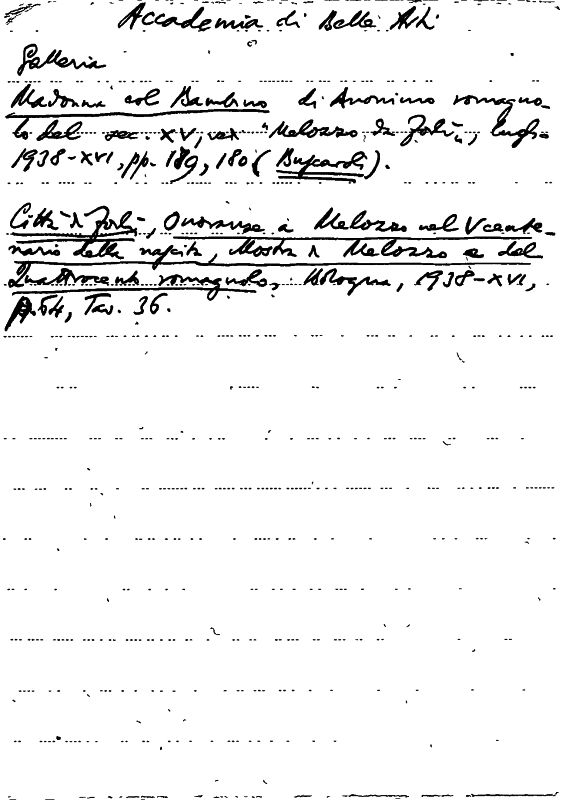 Accademia di Belle Arti
Galleria
Madonna col Bambino di Anonimo romagno-
lo del sec. XV, "Melozzo da Forlì", luglio
1938-XVI, pp. 189, 180 (Buscaroli).
Città di Forlì, Onoranze a Melozzo nel V cente-
nario della nascita, Mostra di Melozzo e del
Quattrocento romagnolo, Bologna, 1938-XVI,
p. 64, Tav. 36.